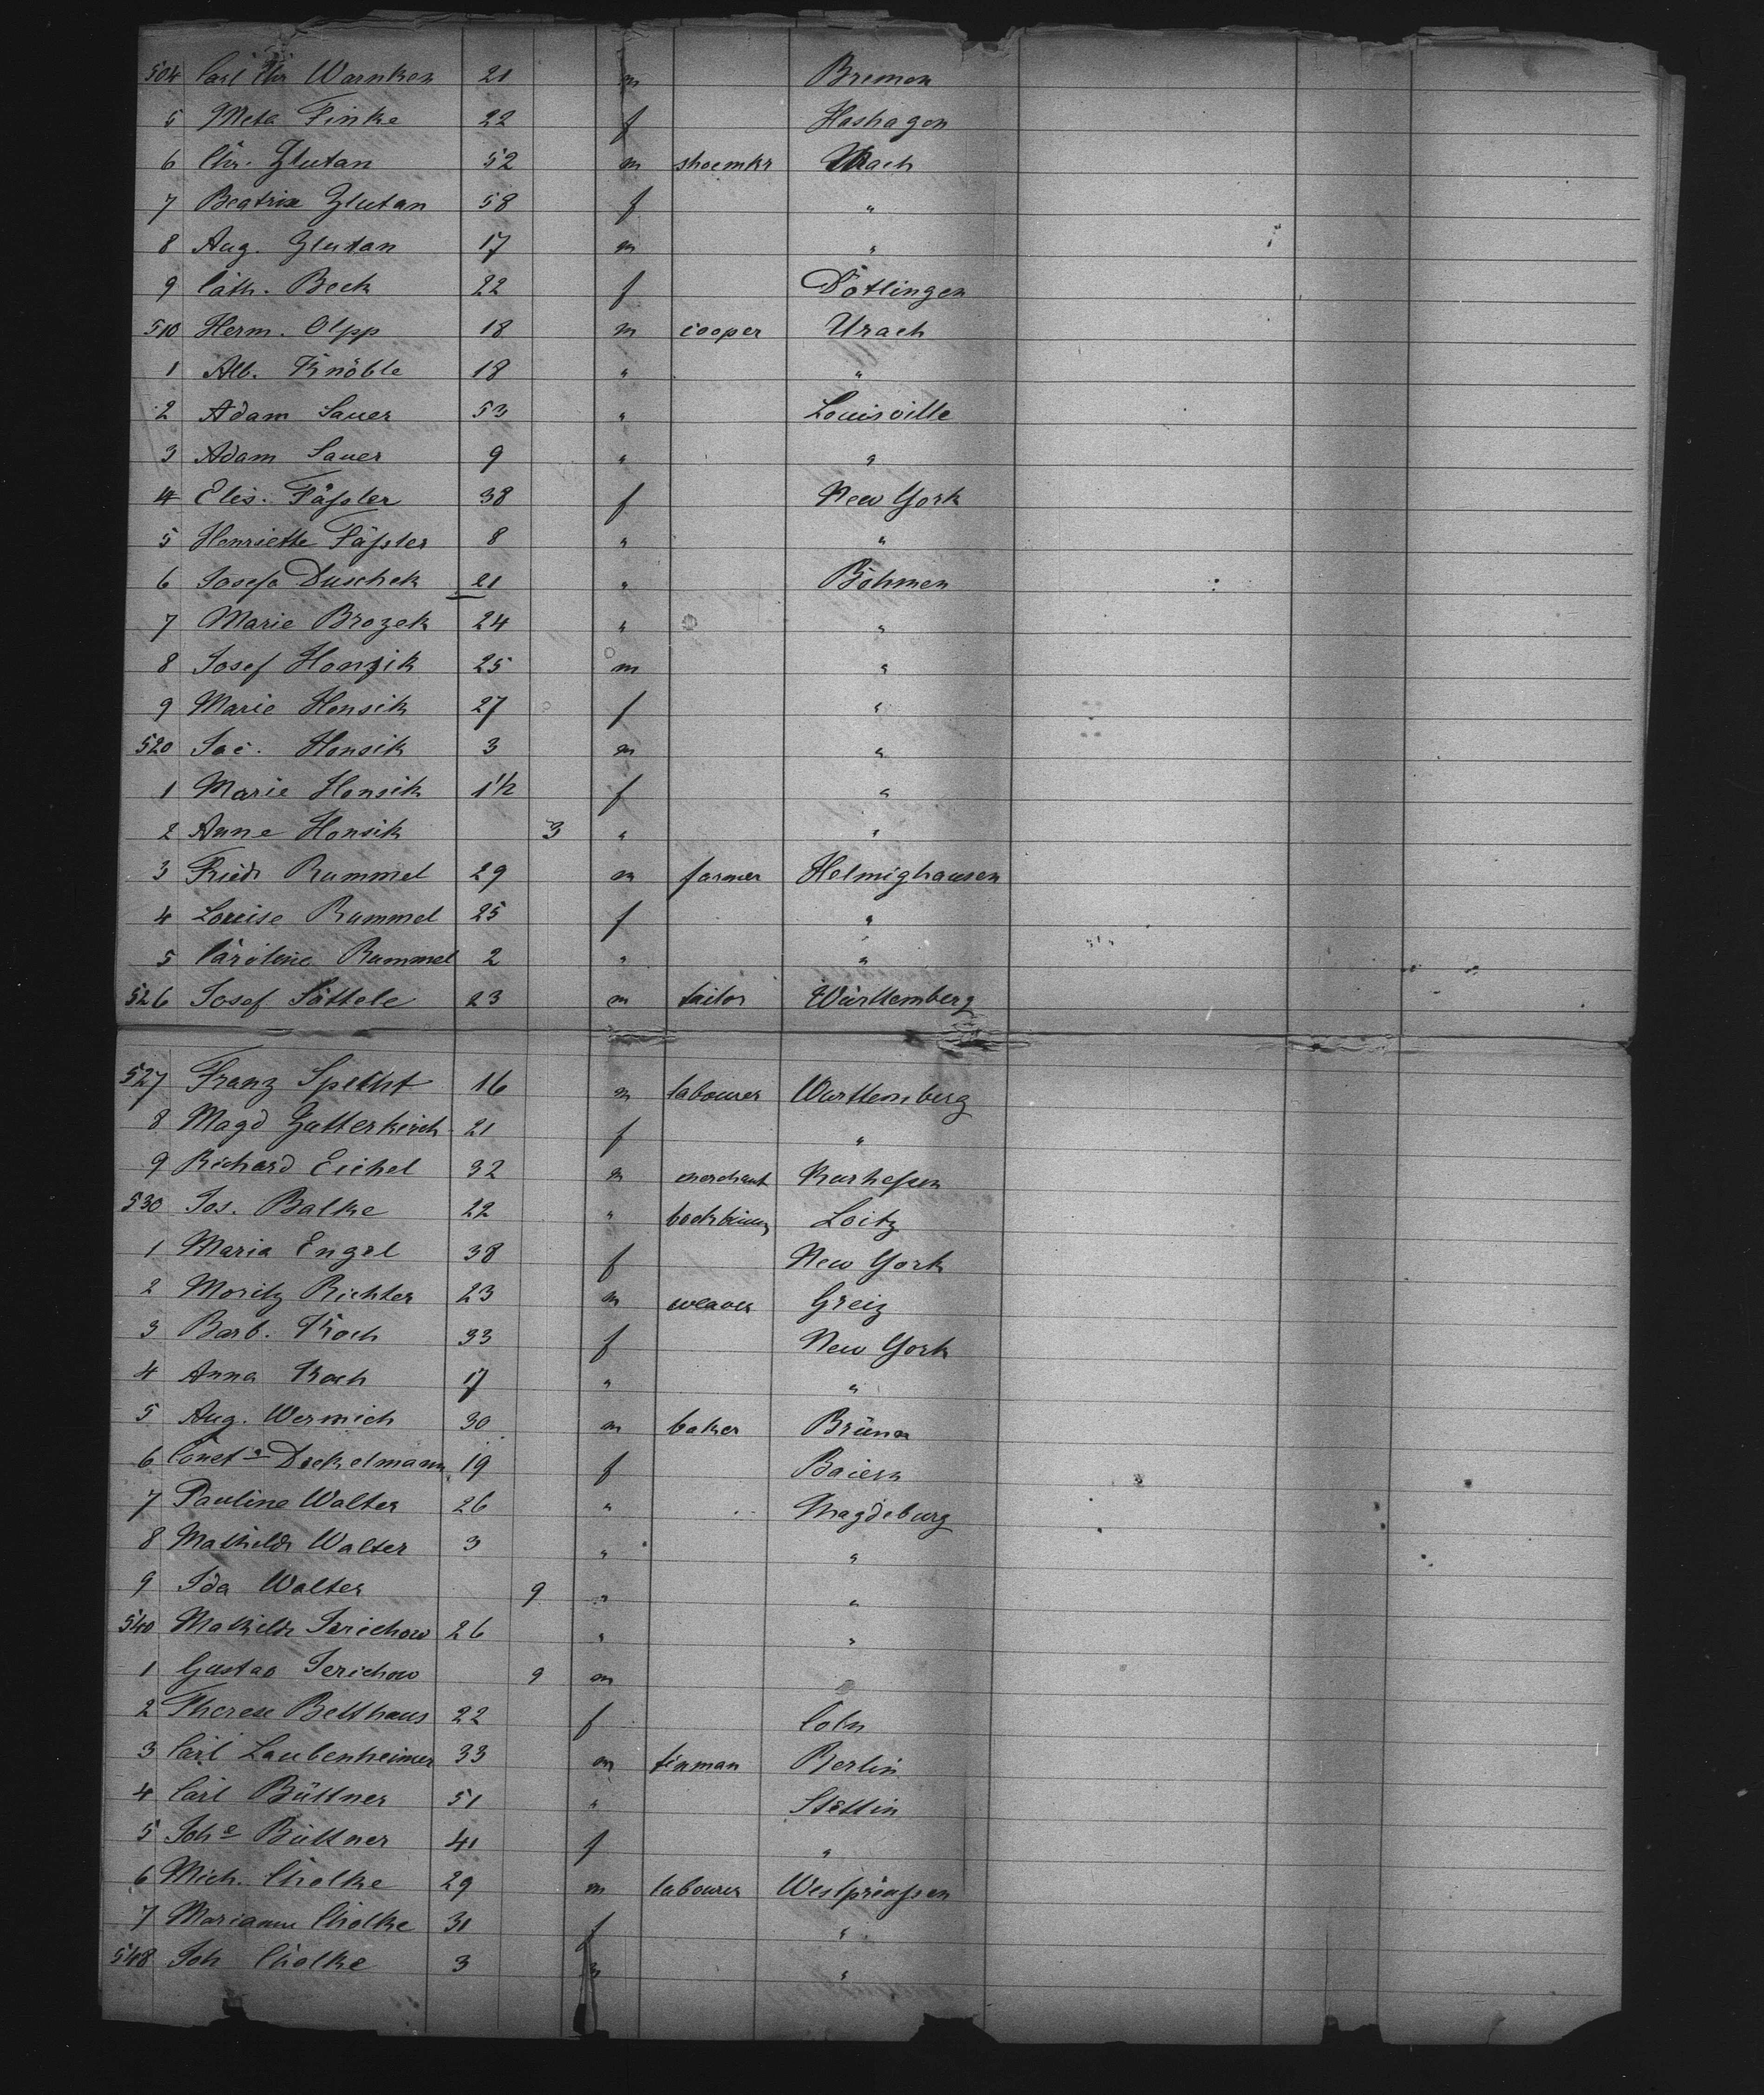 504 Carl Chr Warnken 21 m Bremen
5 Meta Finke 22 f Hashagen
6 Chr. Glutan 52 m shoemkr Urach
7 Beatrix Glutan 58 f "
8 Aug. Glutan 17 m "
9 Cath. Beck 22 f Dötlingen
510 Herm. Olpp 18 m cooper Urach
1 Alb. Knöble 18 " "
2 Adam Sauer 53 " Louisville
3 Adam Sauer 9 " "
4 Elis. Fäßler 38 f New York
5 Henriette Fäßler 8 " "
6 Josefa Duschek 21 " Böhmen
7 Marie Brozek 24 " "
8 Josef Honzik 25 m "
9 Marie Honsik 27 f "
520 Jac. Honsik 3 m "
1 Marie Honsik 1½ f "
2 Anne Honsik 3 " "
3 Friedr Rummel 29 m farmer Helmighausen
4 Louise Rummel 25 f "
5 Caroline Rummel 2 " "
526 Josef Sättele 23 m tailor Württemberg
527 Franz Specht 16 m labourer Württemberg
8 Magd Gutterkirch 21 f "
9 Richard Eichel 32 m merchant Kurhessen
530 Jos. Balke 22 " Loitz
1 Maria Engel 38 f New York
2 Moritz Richter 23 m weaver Greiz
3 Barb. Koch 33 f New York
4 Anna Koch 17 " "
5 Aug. Wermich 30 m baker Brünn
6 Deckelmann 19 f Baiern
7 Pauline Walter 26 " Magdeburg
8 Mathilde Walter 3 " "
9 Ida Walter 9 " "
540 Mathilde Jerichow 26 " "
1 Gustav Jerichow 9 m "
2 Therese Betthaus 22 f Coln
3 Carl Laubenheimer 33 m tinman Berlin
4 Carl Büttner 51 " Stettin
5 Joh<sup>e</sup> Büttner 41 f "
6 Mich. Cholke 29 m labourer Westpreußen
7 Marianne Cholke 31 f "
548 Joh Cholke 3 m "